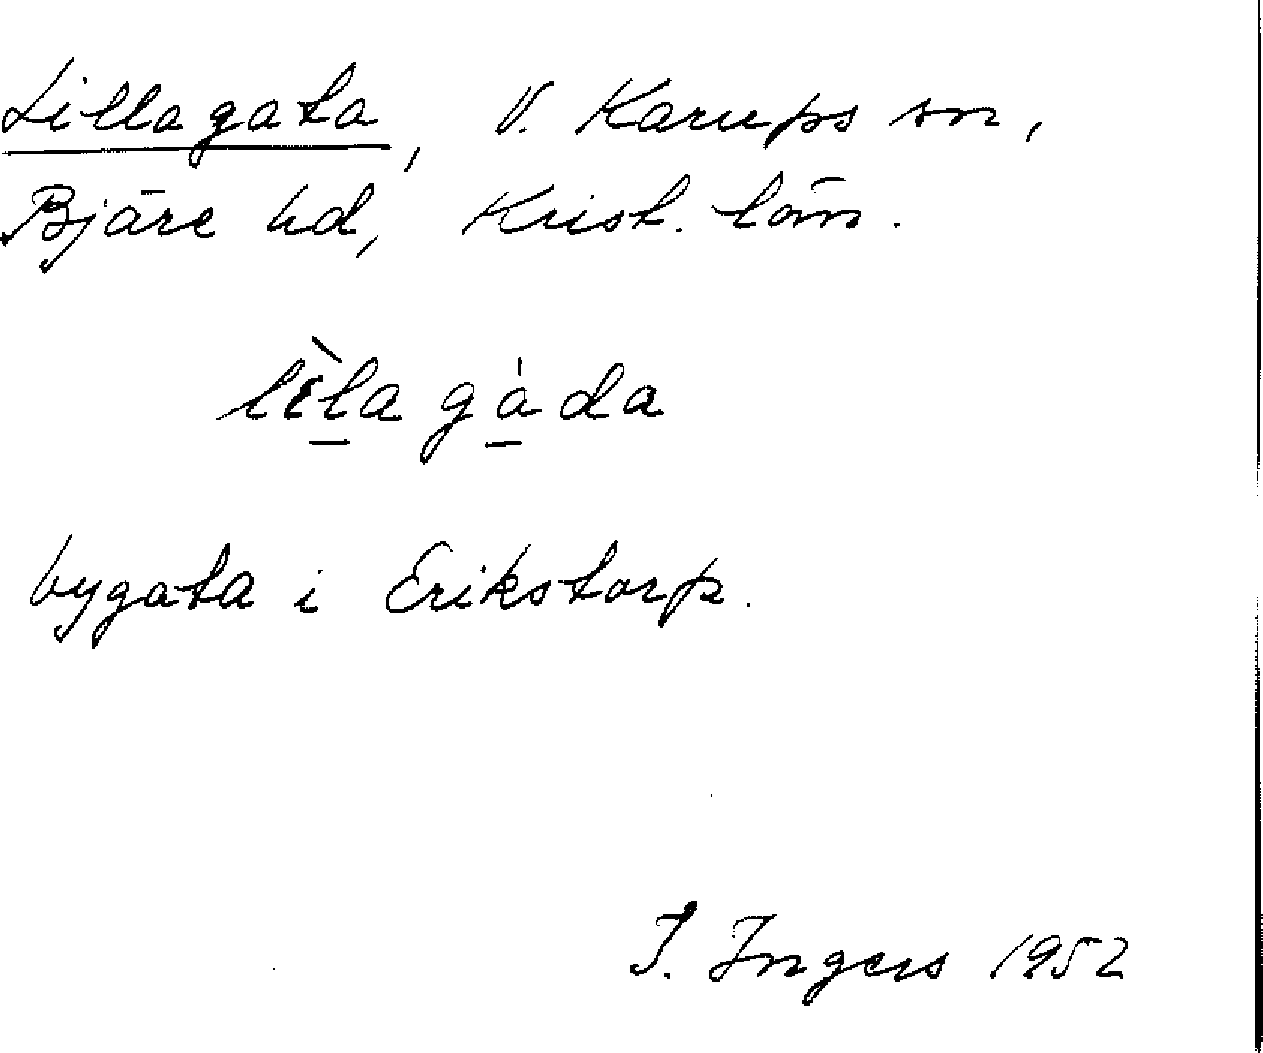 Lillagata, V. Karups sn,
Bjäre hd, Krist. län.
lɛ̀la gàda
bygata i Erikstorp.
I. Ingers 1952